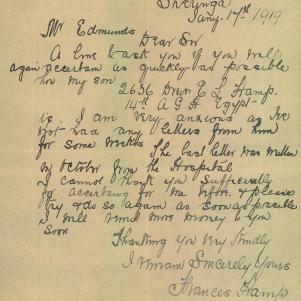 Jany. 17th 1919
Mr Edmunds
Dear Sir
A line to ask you if you will
again ascertain as quickly as possible
how my son
2636 Dvr. E L Hamp.
14th A G H Egypt
is. I am very anxious as I've
not had any letters from him
for some weeks The last letter was written
in October from the Hospital
I cannot thank you sufficiently
for ascertaing for me before. & please
try & do so again as soon as possible
I will send more money to you
soon
Thanking you very kindly
I remain Sincerely Yours
Frances Hamp